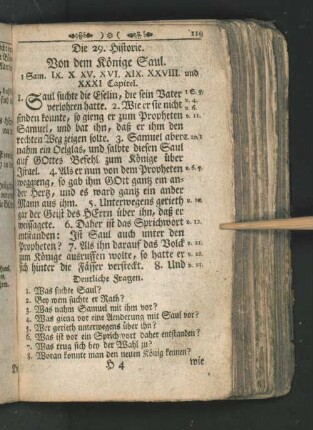 119
Die 29. Historie.
Von dem Könige Saul.
1 Sam. IX. X XV. XVI. XIX. XXVIII. und
XXXI Capitel.
1. Saul suchte die Eselin, die sein Vater
verlohren hatte. 2. Wie er sie nicht
finden konnte, so gieng er zum Propheten
Samuel, und bat ihn, daß er ihm den
rechten Weg zeigen solte. 3. Samuel aber
nahm ein Oelglas, und salbte diesen Saul
auf GOttes Befehl zum Könige über
Israel. 4. Als er nun von dem Propheten
wegging, so gab ihm GOtt gantz ein an-
der Hertz, und es ward gantz ein ander
Mann aus ihm. 5. Unterwegens gerieth
gar der Geist des HErrn über ihn, daß er
weissagete. 6. Daher ist das Sprichwort
entstanden: Ist Saul auch unter den
Propheten? 7. Als ihn darauf das Volck
zum Könige ausruffen wolte, so hatte er
sich hinter die Fässer versteckt. 8. Und
Deutliche Fragen.
1. Was suchte Saul?
2. Bey wem suchte er Rath?
3. Was nahm Samuel mit ihm vor?
4. Was gieng vor eine Aenderung mit Saul vor?
5. Wer gerieth unterwegens über ihn?
6. Was ist vor ein Sprichwort daher entstanden?
7. Was trug sich bey der Wahl zu?
8. Woran konnte man den neuen König kennen?
H 4
wie